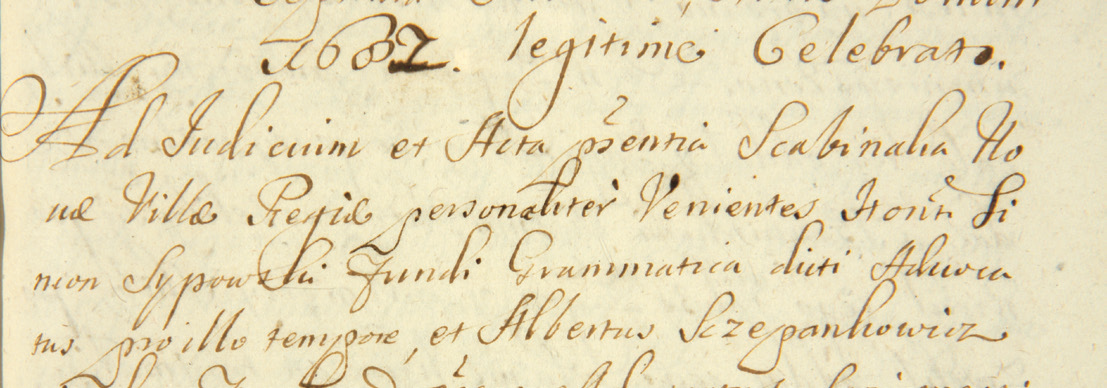 1682. legitime Celebrato.
Ad Judicium et Acta pñentia Scabinalia No
uæ Villæ Regiæ personaliter Venientes Honñ Si
meon Sypowski fundi Grammatica dicti Aduoca
tus pro illo tempore, et Albertus Sczepankowicz